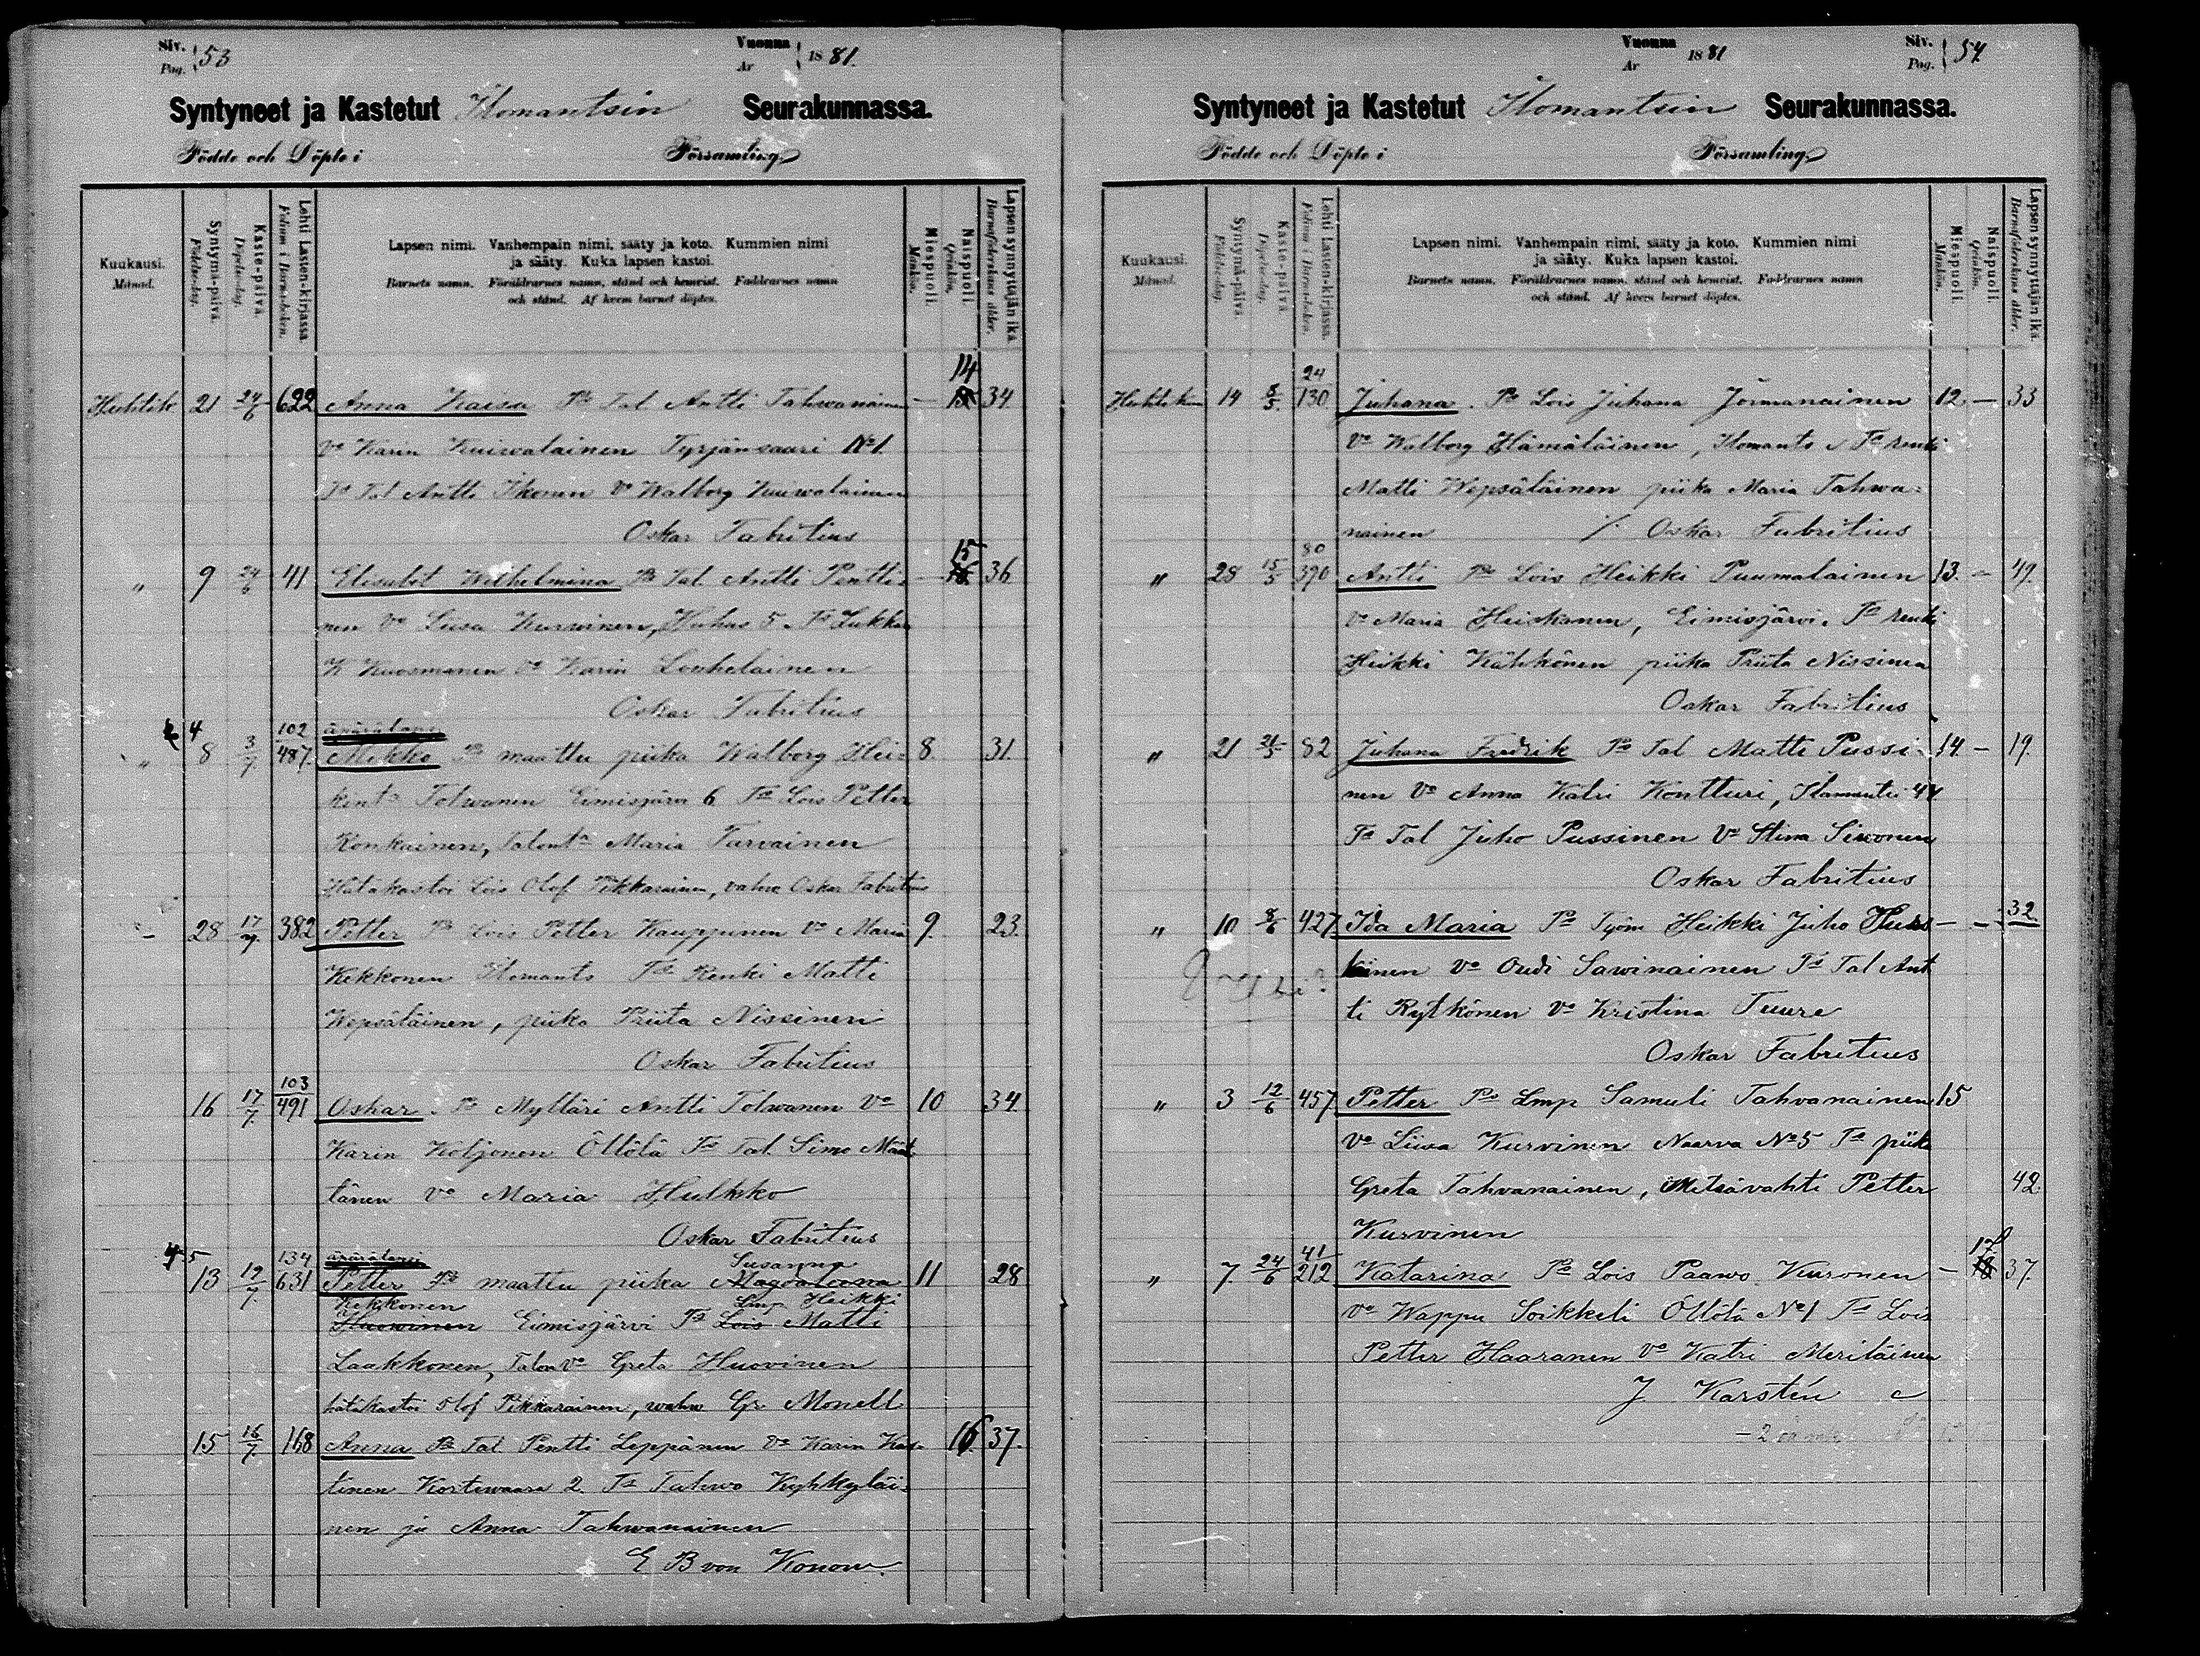 Siv. Pag. 53
Vuonna År 1881.
Syntyneet ja Kastetut Ilomantsin Seurakunnassa.
Födde och Döpte i Församling
Kuukausi. Månad.
Syntymä-päivä. Födelsedag.
Kaste-päivä. Dopelsedag.
Lehti Lasten-kirjassa. Folium i Barnaboken.
Lapsen nimi. Vanhempain nimi, sääty ja koto. Kummien nimi
ja sääty. Kuka lapsen kastoi.
Barnets namn. Föräldrarnes namn, stånd och hemvist. Faddrarnes namn
och stånd. Af hvem barnet döptes.
Miespuoli. Mankön.
Naispuoli. Qvinkön.
Lapsen synnyttäjän ikä. Barnaföderskans ålder.
14
Huhtik. 21 24/6 622 Anna Kaisa Ps Tal Antti Tahwanainen — 15 34.
Vo Karin Kuiwalainen Tyrjänsaari No 1.
Ts Tal Antti Ikonen Vo Walborg Kuiwalainen
Oskar Fabritius
15
" 9 24/6 41 Elisabet Wilhelmina Ps Tal Antti Pentti- — 16 36
nen Vo Liisa Kurwinen, Huhus 5. Ts Lukkar
K Kuosmanen Vo Karin Louhelainen
Oskar Fabritius
4 102 äpärälapsi
" 8 3/7 487. Mikko Ps maattu piika Walborg Hei- 8. 31.
kint. Tolwanen Eimisjärvi 6 Ts Lois Petter
Ronkainen, Talont. Maria Turvainen
Hätäkastoi Lois Olof Pikkarainen, vahv. Oskar Fabritius
- 28 17/7. 382 Petter Ps Lois Petter Kauppinen Vo Maria 9. 23.
Kekkonen Ilomants Ts Renki Matti
Wepsäläinen, piika Priita Nissinen
Oskar Fabritius
103
16 17/7. 491 Oskar. Ps Mylläri Antti Tolwanen Vo 10 34.
Karin Koljonen Öllölä Ts Tal. Simo Määt-
tänen Vo Maria Hulkko
Oskar Fabritius
5 134 äpärälapsi Susanna
13 19/7. 631 Petter Ps maattu piika Magdaleena 11 28
Kekkonen Lmp Heikki
Huowinen Eimisjärvi Ts Lois Matti
Laakkonen, Talon Vo Greta Huovinen
hätäkastoi Olof Pikkarainen, wahw Gr. Monell
15 16/7. 168 Anna Ps Tal Pentti Leppänen Vo Karin Kar- 16. 37.
tinen Kortewaara 2. Ts Tahwo Kyhkyläi-
nen ja Anna Tahwanainen
E B von Konow.
Vuonna År 1881
Siv. Pag. 54
Syntyneet ja Kastetut Ilomantsin Seurakunnassa.
Födde och Döpte i Församling
Kuukausi. Månad.
Syntymä-päivä. Födelsedag.
Kaste-päivä. Dopelsedag.
Lehti Lasten-kirjassa. Folium i Barnaboken.
Lapsen nimi. Vanhempain nimi, sääty ja koto. Kummien nimi
ja sääty. Kuka lapsen kastoi.
Barnets namn. Föräldrarnes namn, stånd och hemvist. Faddrarnes namn
och stånd. Af hvem barnet döptes.
Miespuoli. Mankön.
Naispuoli. Qvinkön.
Lapsen synnyttäjän ikä. Barnaföderskans ålder.
24
Huhtikuu 14 8/5. 130 Juhana. Ps Lois Juhana Jormanainen 12. — 33
Vo Walborg Hämäläinen, Ilomants. Ts renki
Matti Wepsäläinen piika Maria Tahwa-
nainen Oskar Fabritius
80
" 28 15/5 390 Antti Ps Lois Heikki Puumalainen 13. — 49.
Vo Maria Heiskanen, Eimisjärvi. Ts renki
Heikki Kähkönen piika Priita Nissinen
Oskar Fabritius
" 21 21/5 82 Juhana Fredrik Ps Tal Matti Pussi- 14. — 19.
nen Vo Anna Katri Kontturi, Ilomantsi 44
Ts Tal Juho Pussinen Vo Stina Siwonen
Oskar Fabritius
" 10 8/6 427 Ida Maria Ps Työm Heikki Juho Hurs- — — 32
kainen Vo Oudi Sawinainen Ts Tal Ant
ti Rytkönen Vo Kristina Tuure
Oskar Fabritius
" 3 12/6 457 Petter Ps Lmp Samuli Tahvanainen 15
Vo Liisa Kurvinen Naarva No 5 Ts piik
Greta Tahvanainen, Metsävahti Petter 42.
Kurvinen
41 17
" 7 24/6 212 Katarina Ps Lois Paawo Kuronen — 18 37.
Vo Wappu Soikkeli Öllölä No 1 Ts Lois
Petter Haaranen Vo Katri Meriläinen
J. Karstén